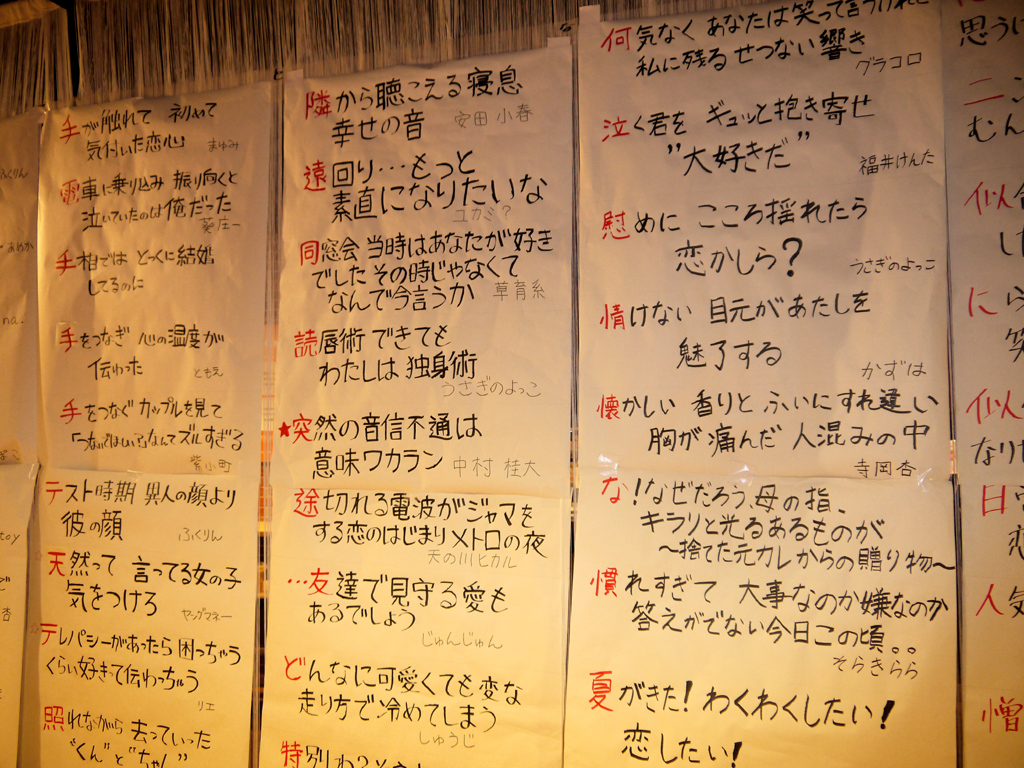 手が触れて 初めて
気付いた恋心
まゆみ
電車に乗り込み 振り向くと
泣いていたのは俺だった
葵庄一
手相では とっくに結婚
してるのに
手をつなぎ 心の温度が
伝わった
ともえ
手をつなぐ カップルを見て
ズルすぎる
紫小町
テスト時期 異人の顔より
彼の顔
ふくりん
天然って 言ってる女の子
気をつけろ
ヤングマネー
テレパシーがあったら 困っちゃう
くらい好きって伝わっちゃう
リエ
照れながら 去っていった
"くん"と"ちゃん"
隣から聴こえる寝息
幸せの音
安田 小春
遠回り…もっと
素直になりたいな
ユカミ?
同窓会 当時はあなたが好き
でした その時じゃなくて
なんで今言うか
草育系
読唇術 できても
わたしは 独身術
うさぎのよっこ
★突然の音信不通は
意味ワカラン
中村 桂大
途切れる電波がジャマを
する恋のはじまりメトロの夜
天の川ヒカル
…友達で見守る愛も
あるでしょう
じゅんじゅん
どんなに可愛くても変な
走り方で冷めてしまう
しゅうじ
特別
何気なく あなたは笑って言うけれど
私に残る せつない響き
グラコロ
泣く君を ギュッと抱き寄せ
"大好きだ"
福井けんた
慰めに こころ揺れたら
恋かしら?
うさぎのよっこ
情けない 目元があたしを
魅了する
かずは
懐かしい 香りと ふいにすれ違い
胸が痛んだ 人混みの中
寺岡杏
な!なぜだろう、母の指、
キラリと光るあるものが
～捨てた元カレからの贈り物～
慣れすぎて 大事なのか嫌なのか
答えがでない今日この頃。。
そらきらら
夏がきた!わくわくしたい!
恋したい!
思う
ニ
むん
似
し
に
笑
似
なり
日
恋
人気
憎